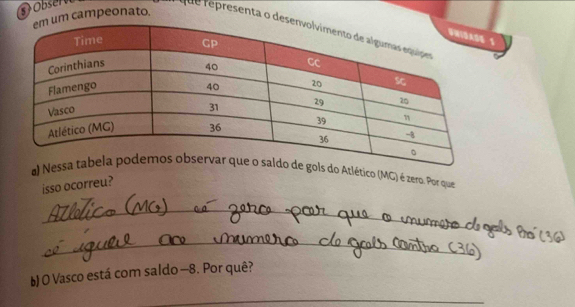 5 Observe
que representa o desenvolvimento de algumas equipes
em um campeonato.
UNIDADE 1
Time GP GC SG
Corinthians 40 20 20
Flamengo 40 29 11
Vasco 31 39 -8
Atlético (MG) 36 36 0
a) Nessa tabela podemos observar que o saldo de gols do Atlético (MG) é zero. Por que
isso ocorreu?
Atlético (MG) é zero por que o numero de gols Pró (36)
é iguale ao numero de gols contra (36)
b) O Vasco está com saldo -8. Por quê?